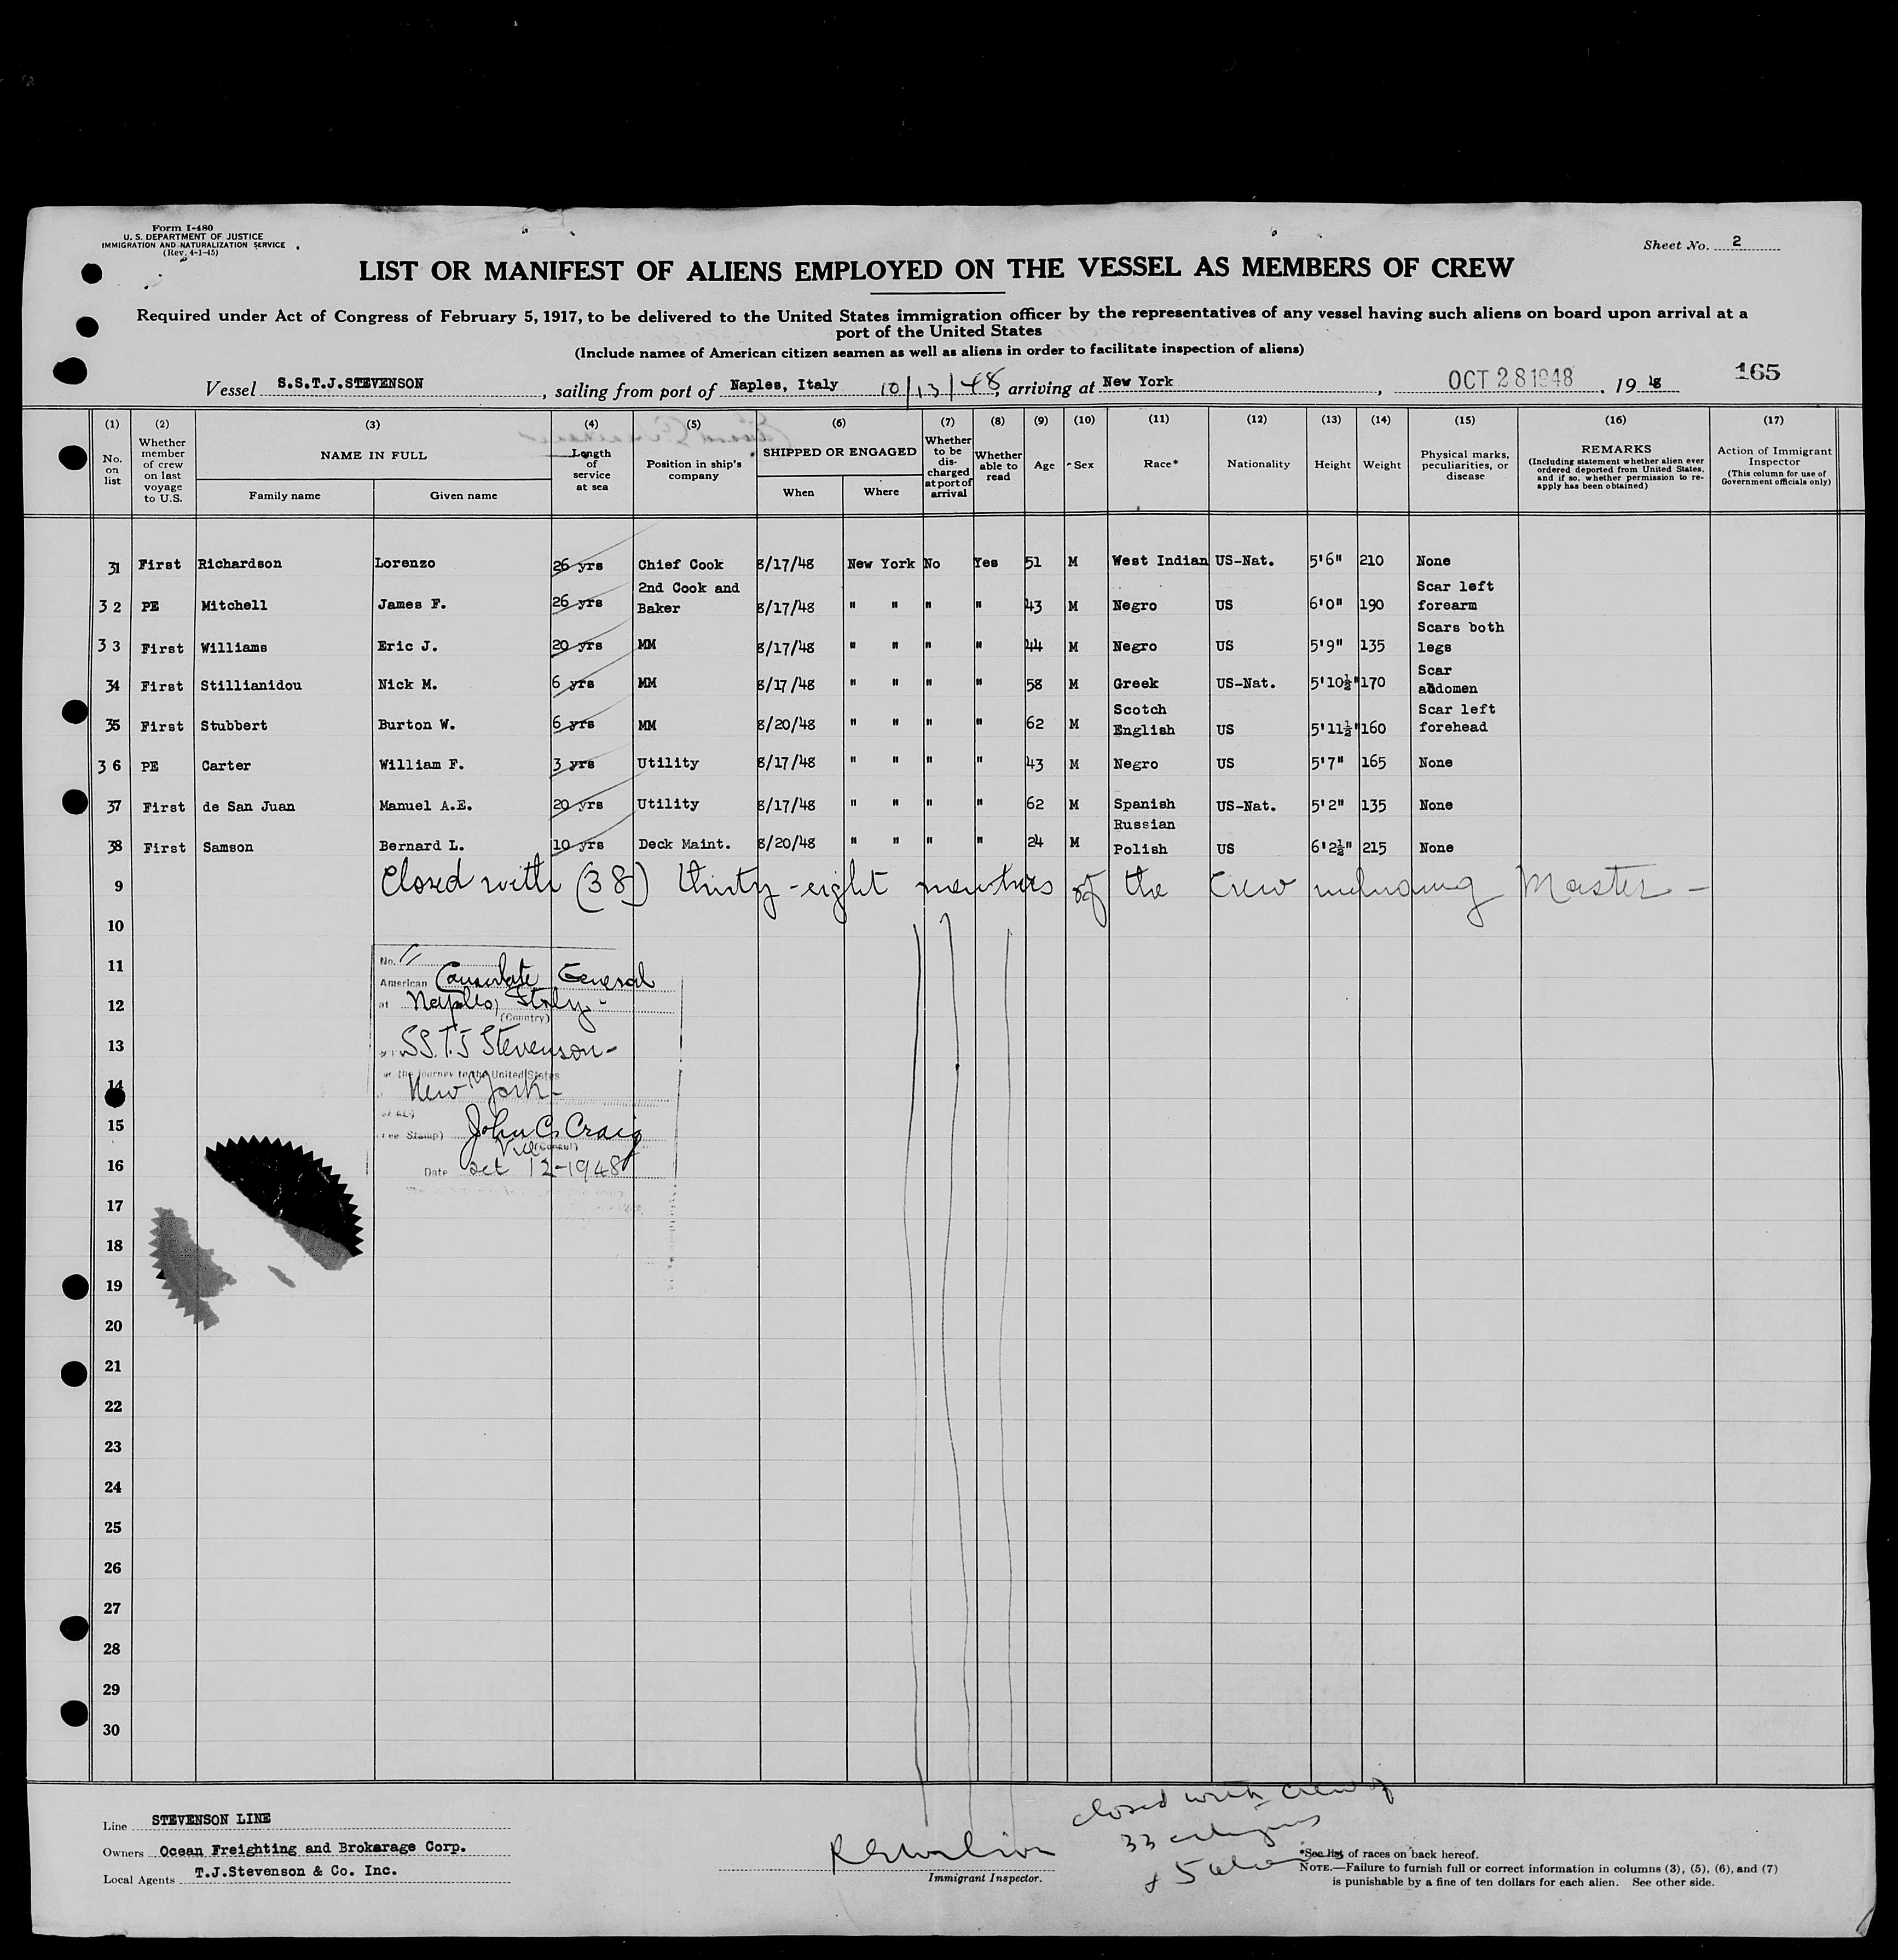 Form I-480
U. S. DEPARTMENT OF JUSTICE
IMMIGRATION AND NATURALIZATION SERVICE
(Rev. 4-1-45)
Sheet No. 2
LIST OR MANIFEST OF ALIENS EMPLOYED ON THE VESSEL AS MEMBERS OF CREW
Required under Act of Congress of February 5, 1917, to be delivered to the United States immigration officer by the representatives of any vessel having such aliens on board upon arrival at a
port of the United States
(Include names of American citizen seamen as well as aliens in order to facilitate inspection of aliens)
165
Vessel S.S.T.J.STEVENSON, sailing from port of Naples, Italy 10/13/48, arriving at New York, OCT 28 1948, 19 48
(1) (2) (3) (4) (5) (6) (7) (8) (9) (10) (11) (12) (13) (14) (15) (16) (17)
No. on list
Whether member of crew on last voyage to U.S.
NAME IN FULL
Family name
Given name
Length of service at sea
Position in ship's company
SHIPPED OR ENGAGED
When
Where
Whether to be discharged at port of arrival
Whether able to read
Age
Sex
Race*
Nationality
Height
Weight
Physical marks, peculiarities, or disease
REMARKS
(Including statement whether alien ever ordered deported from United States, and if so, whether permission to re-apply has been obtained)
Action of Immigrant Inspector
(This column for use of Government officials only)
31 First Richardson Lorenzo 26 yrs Chief Cook 8/17/48 New York No Yes 51 M West Indian US-Nat. 5'6" 210 None
32 PE Mitchell James F. 26 yrs 2nd Cook and Baker 8/17/48 " " " " 43 M Negro US 6'0" 190 Scar left forearm
33 First Williams Eric J. 20 yrs MM 8/17/48 " " " " 44 M Negro US 5'9" 135 Scars both legs
34 First Stillianidou Nick M. 6 yrs MM 8/17/48 " " " " 58 M Greek US-Nat. 5'10½" 170 Scar abdomen
35 First Stubbert Burton W. 6 yrs MM 8/20/48 " " " " 62 M Scotch English US 5'11½" 160 Scar left forehead
36 PE Carter William F. 3 yrs Utility 8/17/48 " " " " 43 M Negro US 5'7" 165 None
37 First de San Juan Manuel A.E. 20 yrs Utility 8/17/48 " " " " 62 M Spanish US-Nat. 5'2" 135 None
38 First Samson Bernard L. 10 yrs Deck Maint. 8/20/48 " " " " 24 M Russian Polish US 6'2½" 215 None
9 Closed with (38) thirty-eight members of the Crew including Master -
10
11
No. 11
American Consulate General
12
at Naples, Italy -
(Country)
13
SS.T.J Stevenson -
the journey to the United States
14
New York -
15
(Fee Stamp) John C. Craig
Vice (Consul)
16
Date Oct 12-1948
17
18
19
20
21
22
23
24
25
26
27
28
29
30
closed with crew of
33 citizens
& 5 aliens
Line STEVENSON LINE
Owners Ocean Freighting and Brokerage Corp.
Local Agents T.J.Stevenson & Co. Inc.
Immigrant Inspector.
*See list of races on back hereof.
NOTE.—Failure to furnish full or correct information in columns (3), (5), (6), and (7)
is punishable by a fine of ten dollars for each alien. See other side.